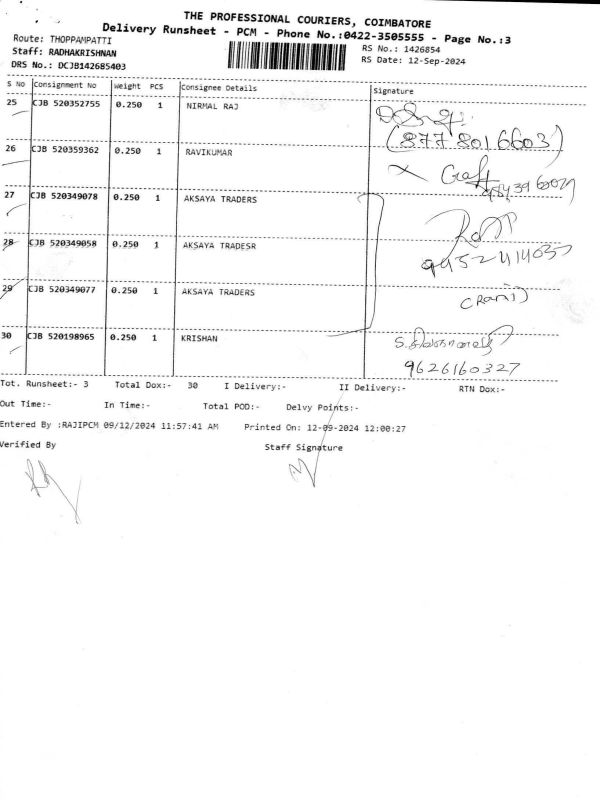 THE PROFESSIONAL COURIERS, COIMBATORE
Delivery Runsheet - PCM - Phone No.:0422-3505555 - Page No.:3
Route: THOPPAMPATTI
Staff: RADHAKRISHNAN
DRS No.: DCJB142685403
RS No.: 1426854
RS Date: 12-Sep-2024
S No Consignment No Weight PCS Consignee Details Signature
25 CJB 520352755 0.250 1 NIRMAL RAJ
(877 801 6603)
26 CJB 520359362 0.250 1 RAVIKUMAR
27 CJB 520349078 0.250 1 AKSAYA TRADERS
28 CJB 520349058 0.250 1 AKSAYA TRADESR
29 CJB 520349077 0.250 1 AKSAYA TRADERS
(Rani)
30 CJB 520198965 0.250 1 KRISHAN
9626160327
Tot. Runsheet:- 3 Total Dox:- 30 I Delivery:- II Delivery:- RTN Dox:-
Out Time:- In Time:- Total POD:- Delvy Points:-
Entered By :RAJIPCM 09/12/2024 11:57:41 AM Printed On: 12-09-2024 12:00:27
Verified By Staff Signature